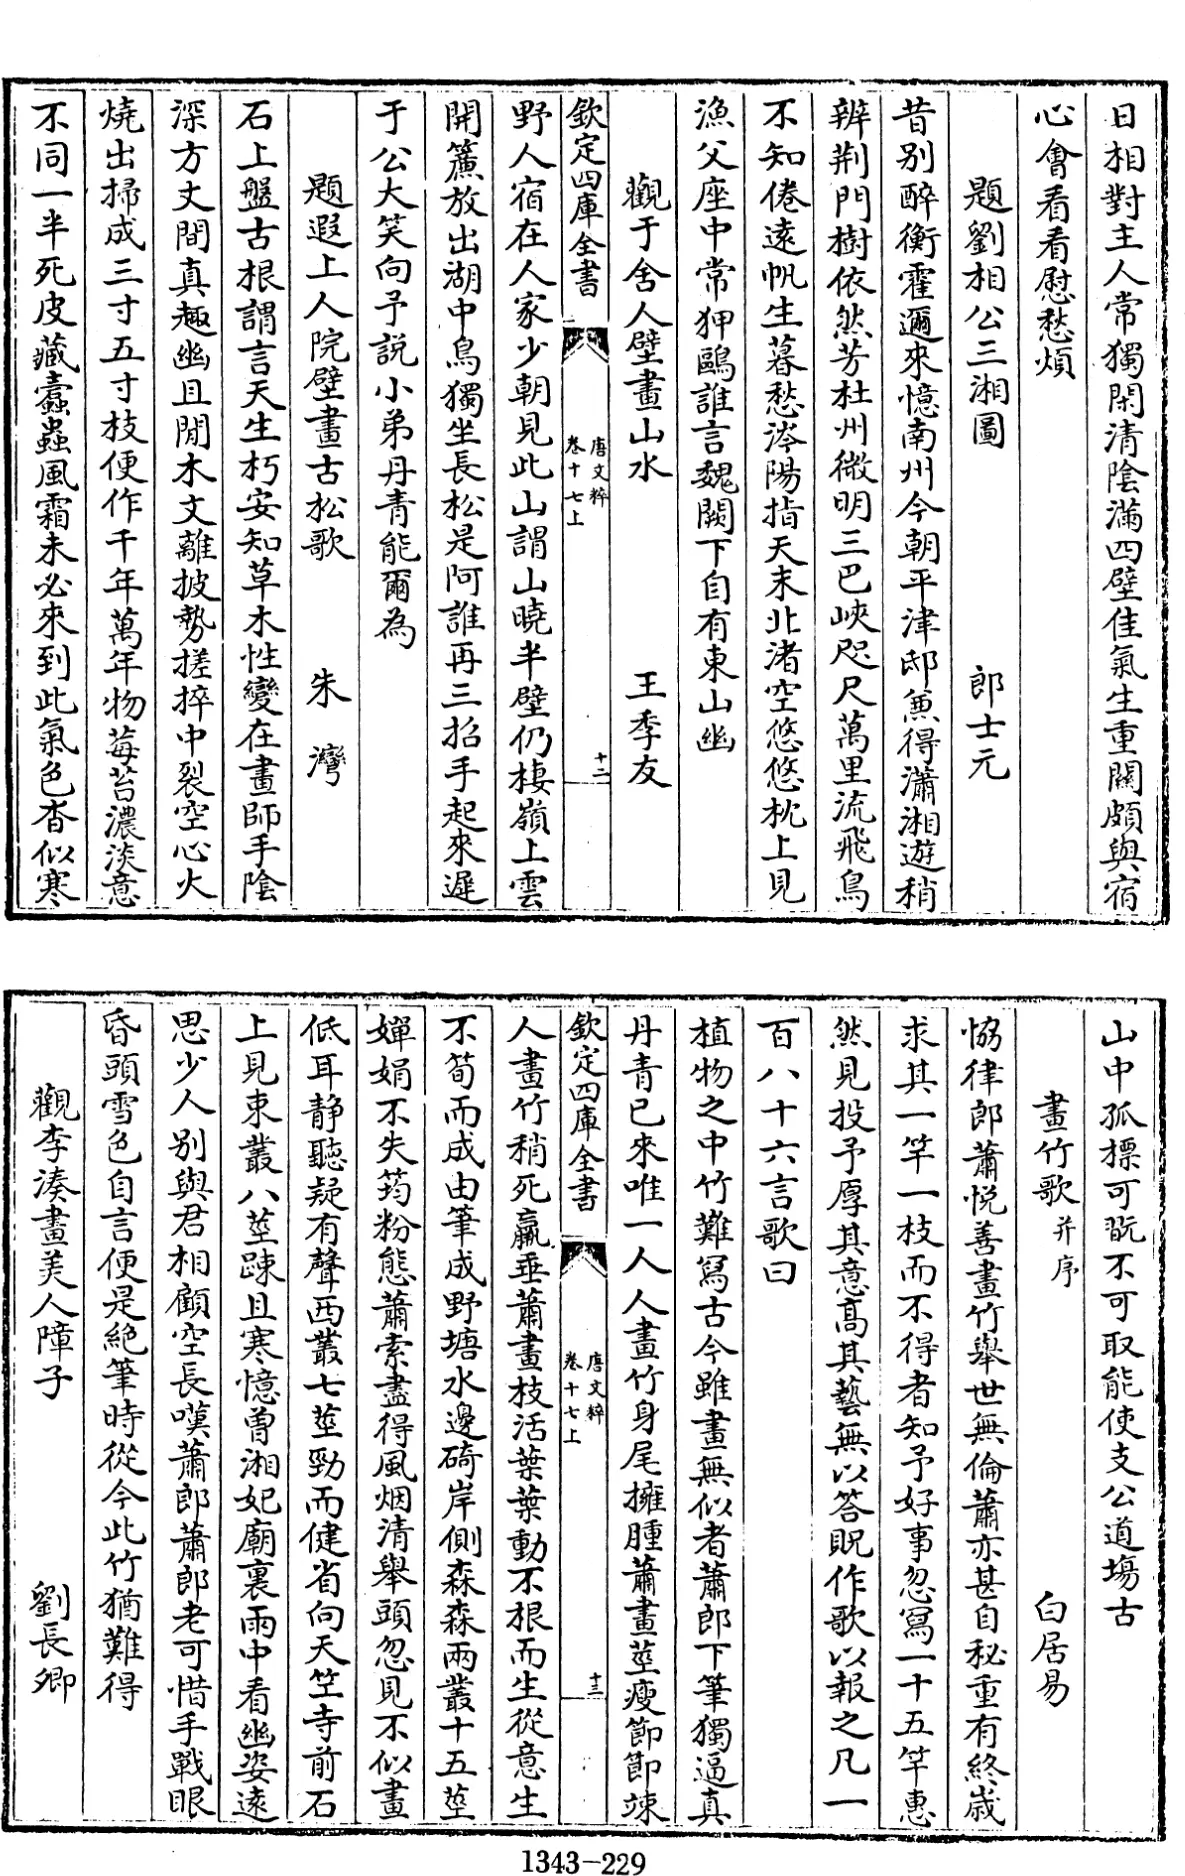 日相對主人常獨閑清陰滿四壁佳氣生重關頗與宿
心會看看慰愁煩
題劉相公三湘圖　郎士元
昔別醉衡霍邇來憶南州今朝平津邸兼得瀟湘遊稍
辨荆門樹依然芳杜州微明三巴峽咫尺萬里流飛鳥
不知倦遠帆生暮愁涔陽指天末北渚空悠悠枕上見
漁父座中常狎鷗誰言魏闕下自有東山幽
觀于舍人壁畫山水　王季友
欽定四庫全書　唐文粹卷十七上　十二
野人宿在人家少朝見此山謂山曉半壁仍棲嶺上雲
開簾放出湖中鳥獨坐長松是阿誰再三招手起來遲
于公大笑向予說小弟丹青能爾為
題遐上人院壁畫古松歌　朱灣
石上盤古根謂言天生朽安知草木性變在畫師手陰
深方丈間真趣幽且閒木文離披勢搓捽中裂空心火
燒出掃成三寸五寸枝便作千年萬年物莓苔濃淡意
不同一半死皮藏蠹蟲風霜未必來到此氣色杳似寒
山中孤標可翫不可取能使支公道場古
畫竹歌并序　白居易
恊律郎蕭悅善畫竹舉世無倫蕭亦甚自秘重有終歲
求其一竿一枝而不得者知予好事忽寫一十五竿惠
然見投予厚其意高其藝無以答貺作歌以報之凡一
百八十六言歌曰
植物之中竹難寫古今雖畫無似者蕭郎下筆獨逼真
丹青已來唯一人人畫竹身尾擁腫蕭畫莖瘦節節竦
欽定四庫全書　唐文粹卷十七上　十三
人畫竹稍死羸垂蕭畫枝活葉葉動不根而生從意生
不筍而成由筆成野塘水邊碕岸側森森兩叢十五莖
嬋娟不失筠粉態蕭索盡得風烟清舉頭忽見不似畫
低耳静聽疑有聲西叢七莖勁而健省向天竺寺前石
上見東叢八莖踈且寒憶曾湘妃廟裏雨中看幽姿遠
思少人別與君相顧空長嘆蕭郎蕭郎老可惜手戰眼
昏頭雪色自言便是絕筆時從今此竹猶難得
觀李湊畫美人障子　劉長卿
1343-229